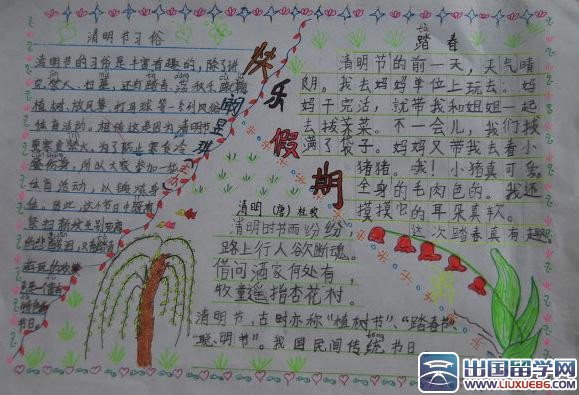 清明节习俗
清明节的习俗是丰富有趣的,除了讲
究禁火、扫墓,还有踏青、荡秋千、
植树、放风筝、打马球等一系列风俗
体育活动。相传这是因为清明节
要寒食禁火,为了防止寒食冷
所以大家参加一些
体育活动,以锻炼身
体。因此,这个节日中既有
快乐假期
踏春
清明节的前一天,天气晴
阴。我去妈妈单位上玩去。妈
妈干完活,就带我和姐姐一起
去拔荠菜。不一会儿,我们拔
满了袋子。妈妈又带我去看小
猪猪。哦!小猪真可爱。
全身的毛肉色的。我还
摸摸它的耳朵真软。
这次踏春真有趣
清明 (唐) 杜牧
清明时节雨纷纷
路上行人欲断魂。
借问酒家何处有,
牧童遥指杏花村。
清明节,古时亦称"植树节"、"踏春节"
"聪明节"。我国民间传统节日
出国留学网
www.liuxue86.com